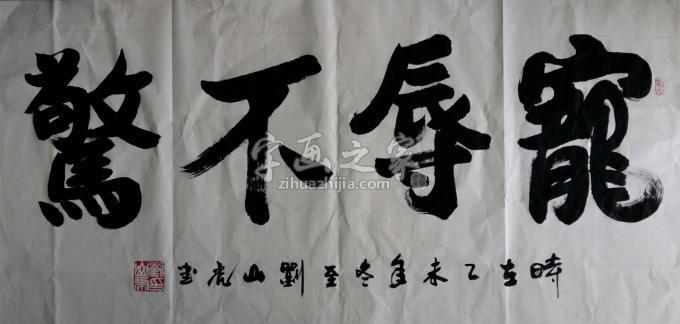 寵辱不驚
字画之家
zihuazhijia.com
時在乙未年冬至劉山虎書